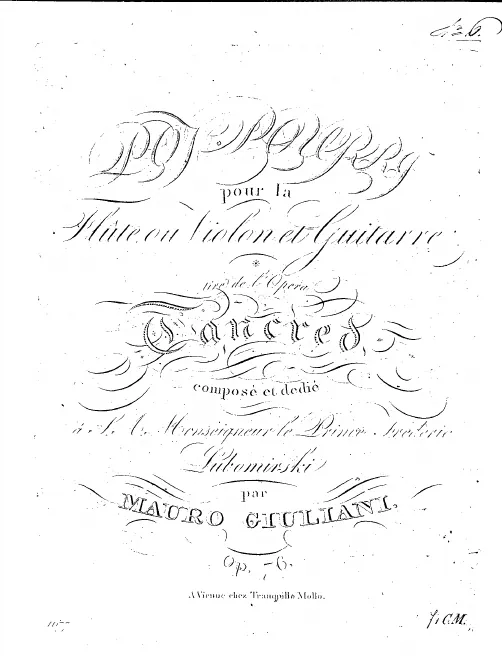 POT-POURRI
pour la
Flûte ou Violon et Guitarre
tiré de l'Opera
Tancred,
composé et dedié
à S. A. Monseigneur le Prince Frederic
Lubomirski
par
MAURO GIULIANI.
Op. 76.
A Vienne chez Tranquillo Mollo.
f1 C.M.